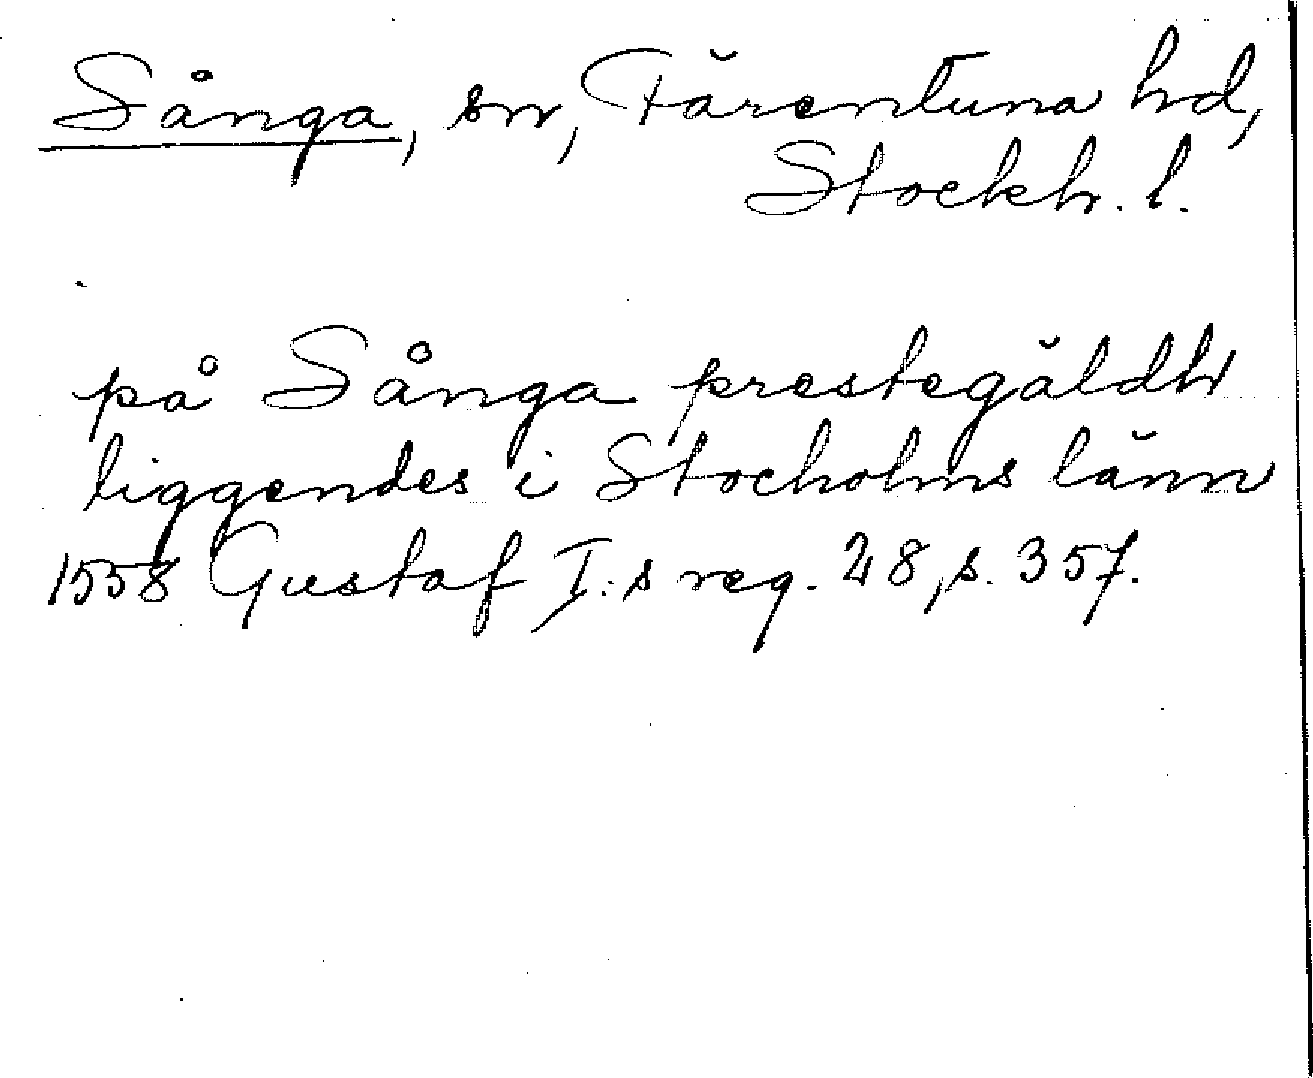 Sånga, sn, Färentuna hd,
Stockh. l.
på Sånga prestegäldh
liggendes i Stocholms länn
1558 Gustaf I:s reg. 28, s. 357.